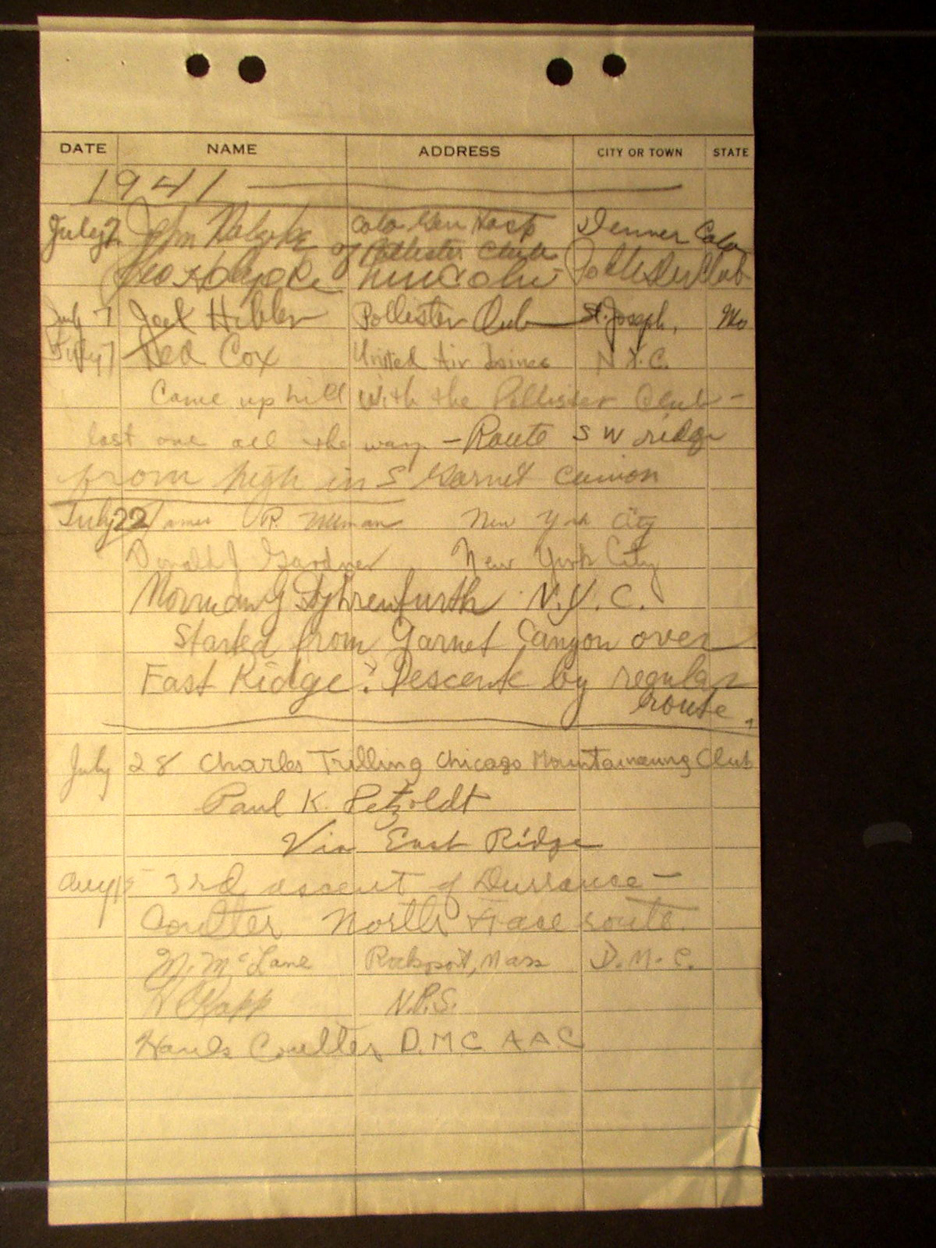 DATE NAME ADDRESS CITY OR TOWN STATE
1941
July 7 John Colo Gen Hosp Denver Colo
of Pollister Club
Lincoln Pollister Club
July 7 Jack Hibler Pollister Club St. Joseph, Mo
July 7 Cox United Air Lines N.Y.C.
Came up hill With the Pollister Club -
lost one all the way - Route S W ridge
from high in S Garnet Canion
July 22 James R. New York City
Donald J Gardner New York City
Norman G Dyhrenfurth N.Y.C.
Started from Garnet Canyon over
East Ridge. Descent by regular
route.
July 28 Charles Trilling Chicago Mountaineering Club
Paul K. Petzoldt
Via East Ridge
Aug 15 3rd ascent of Durrance -
Coulter North Face route.
McLane Rockport, Mass D.M.C.
N.P.S.
Coulter D.M.C. A A C